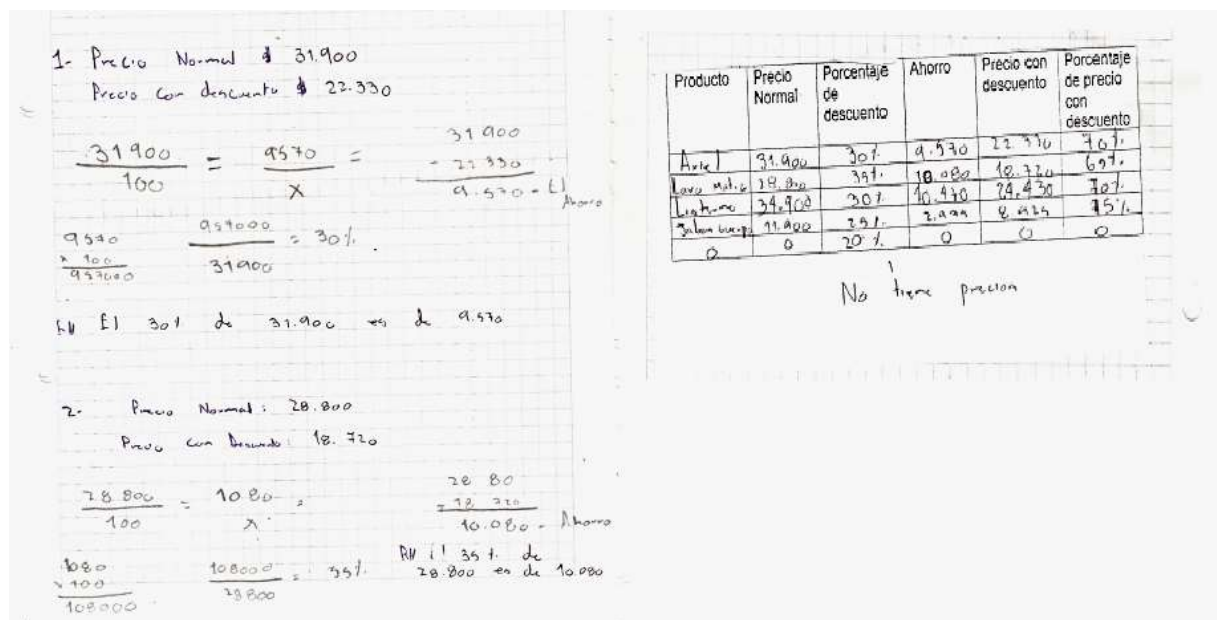 1- Precio Normal $ 31.900
Precio con descuento $ 22.330
31900 / 100 = 9570 / X =
31900
- 22330
9.570 - El Ahorro
9570
x 100
957000
957000 / 31900 = 30%.
R// El 30% de 31.900 es de 9.570
2- Precio Normal: 28.800
Precio con Descuento: 18.720
28.800 / 100 = 1080 / X =
28 80
- 18 720
10.080 - Ahorro
1080
x 100
108000
108000 / 28800 = 35%
R// El 35% de
28.800 es de 10.080
Producto Precio Normal Porcentaje de descuento Ahorro Precio con descuento Porcentaje de precio con descuento
Ariel 31.900 30% 9.570 22 330 70%
28.800 35% 10.080 18.720 65%
34.900 30% 10.470 24.430 70%
11.900 25% 8.925 75%
0 0 20% 0 0 0
No tiene precion